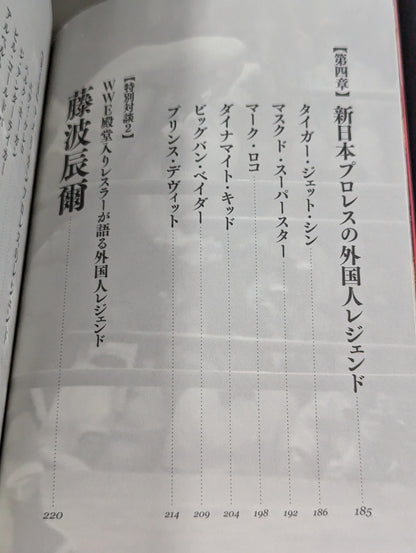 【第四章】新日本プロレスの外国人レジェンド 185
タイガー・ジェット・シン 186
マスクド・スーパースター 192
マーク・ロコ 198
ダイナマイト・キッド 204
ビッグバン・ベイダー 209
プリンス・デヴィット 214
【特別対談2】
WWE殿堂入りレスラーが語る外国人レジェンド
藤波辰爾 220